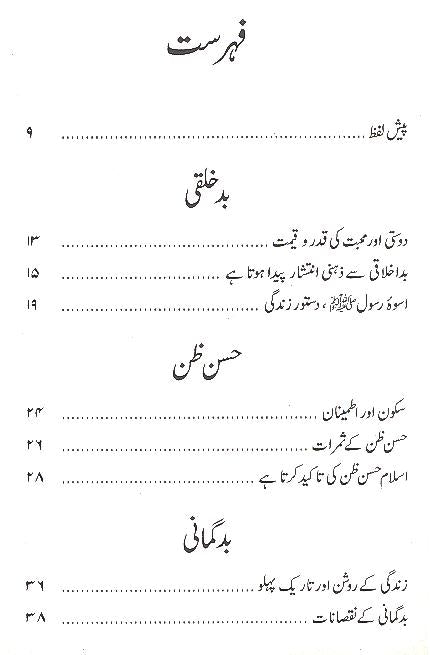 فہرست
پیش لفظ ........................................ ۹
بدخلقی
دوستی اور محبت کی قدر و قیمت ........................................ ۱۳
بداخلاقی سے ذہنی انتشار پیدا ہوتا ہے ........................................ ۱۵
اسوۂ رسول ﷺ، دستور زندگی ........................................ ۱۹
حسن ظن
سکون اور اطمینان ........................................ ۲۴
حسن ظن کے ثمرات ........................................ ۲۶
اسلام حسن ظن کی تاکید کرتا ہے ........................................ ۲۸
بدگمانی
زندگی کے روشن اور تاریک پہلو ........................................ ۳۶
بدگمانی کے نقصانات ........................................ ۳۸